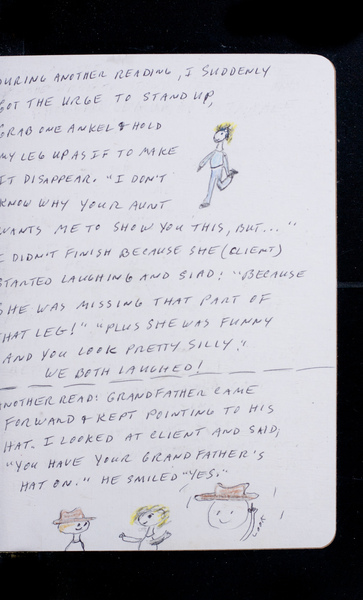 DURING ANOTHER READING, I SUDDENLY
GOT THE URGE TO STAND UP,
GRAB ONE ANKEL & HOLD
MY LEG UP AS IF TO MAKE
IT DISAPPEAR. "I DON'T
KNOW WHY YOUR AUNT
WANTS ME TO SHOW YOU THIS, BUT..."
I DIDN'T FINISH BECAUSE SHE (CLIENT)
STARTED LAUGHING AND SIAD: "BECAUSE
SHE WAS MISSING THAT PART OF
THAT LEG!" "PLUS SHE WAS FUNNY
AND YOU LOOK PRETTY SILLY."
WE BOTH LAUGHED!
ANOTHER READ: GRANDFATHER CAME
FORWARD & KEPT POINTING TO HIS
HAT. I LOOKED AT CLIENT AND SAID,
"YOU HAVE YOUR GRANDFATHER'S
HAT ON." HE SMILED "YES."
LOOK